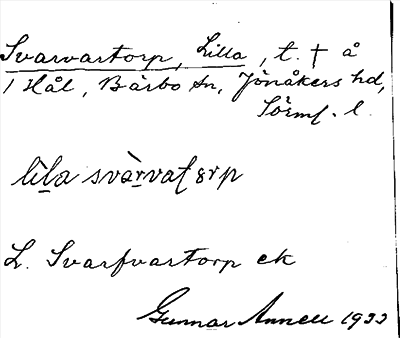 Svarvartorp, Lilla, t. † å
1 Hål, Bärbo sn, Jönåkers hd,
Sörml. l.
lìla svàrvatɽ srp
L. Svarfvartorp ek
Gunnar Annell 1933